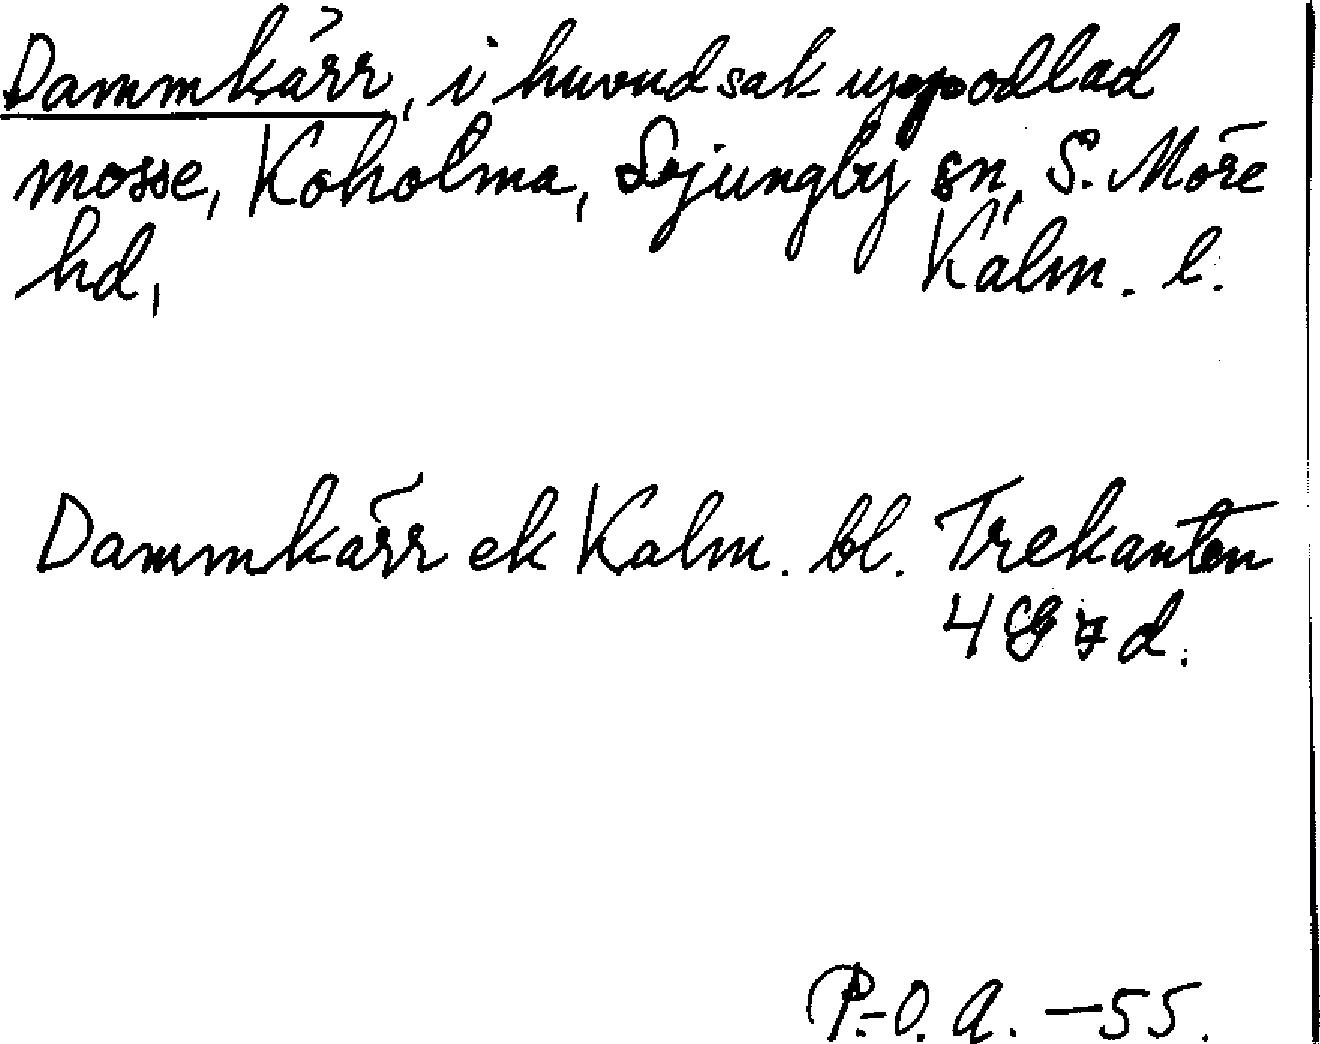 Dammkärr, i huvudsak uppodlad
mosse, Koholma, Ljungby sn, S. Möre
hd, Kalm. l.
Dammkärr ek Kalm. bl. Trekanten
4 G 7 d.
P.-O. A. –55.